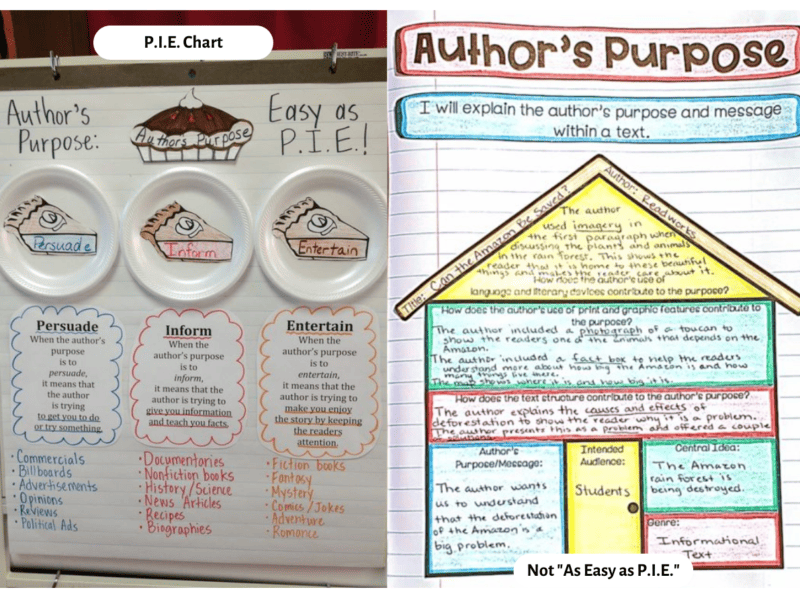 P.I.E. Chart
Author's
Purpose:
Authors Purpose
Easy as
P.I.E.!
Persuade
Inform
Entertain
Persuade
When the author's
purpose
is to
persuade,
it means that
the author
is trying
to get you to do
or try something.
Inform
When the
author's purpose
is to
inform,
it means that the
author is trying to
give you information
and teach you facts.
Entertain
When the
author's purpose
is to
entertain,
it means that the
author is trying to
make you enjoy
the story by keeping
the readers
attention.
• Commercials
• Billboards
• Advertisements
• Opinions
• Reviews
• Political Ads
• Documentories
• Nonfiction books
• History/Science
• News Articles
• Recipes
• Biographies
• Fiction books
• Fantasy
• Mystery
• Comics/Jokes
• Adventure
• Romance
Author's Purpose
I will explain the author's purpose and message
within a text.
Title: Can the Amazon Be Saved?
Author: Readworks
The author
used imagery in
the first paragraph when
discussing the plants and animals
in the rain forest. This shows the
reader that it is home to these beautiful
things and makes the reader care about it.
How does the author's use of
language and literary devices contribute to the purpose?
How does the author's use of print and graphic features contribute to
the purpose?
The author included a photograph of a toucan to
show the readers one of the animals that depends on the
Amazon.
The author included a fact box to help the readers
understand more about how big the Amazon is and how
many things live there.
The map shows where it is and how big it is.
How does the text structure contribute to the author's purpose?
The author explains the causes and effects of
deforestation to show the reader why it is a problem.
The author presents this as a problem and offered a couple
Author's
Purpose/Message:
The author wants
us to understand
that the deforestation
of the Amazon is a
big problem.
Intended
Audience:
Students
Central Idea:
The Amazon
rain forest is
being destroyed.
Genre:
Informational
Text
Not "As Easy as P.I.E."